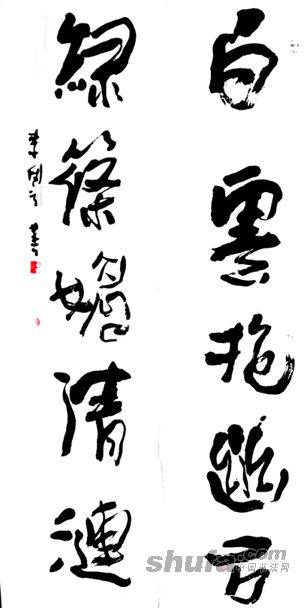 白雲抱幽石
緑篠媚清漣
shufa.com
中国书法网